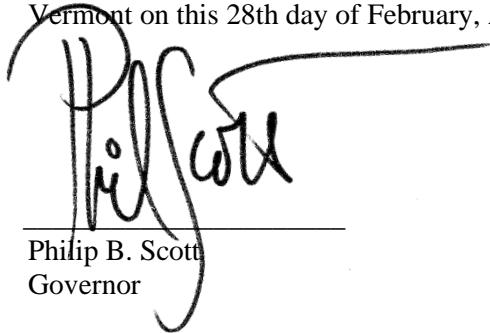 Vermont on this 28th day of February,
Phil Scott
Philip B. Scott
Governor